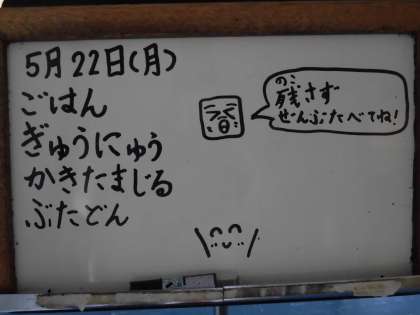 5月22日(月)
ごはん
ぎゅうにゅう
かきたまじる
ぶたどん
のこ
残さず
ぜんぶたべてね!